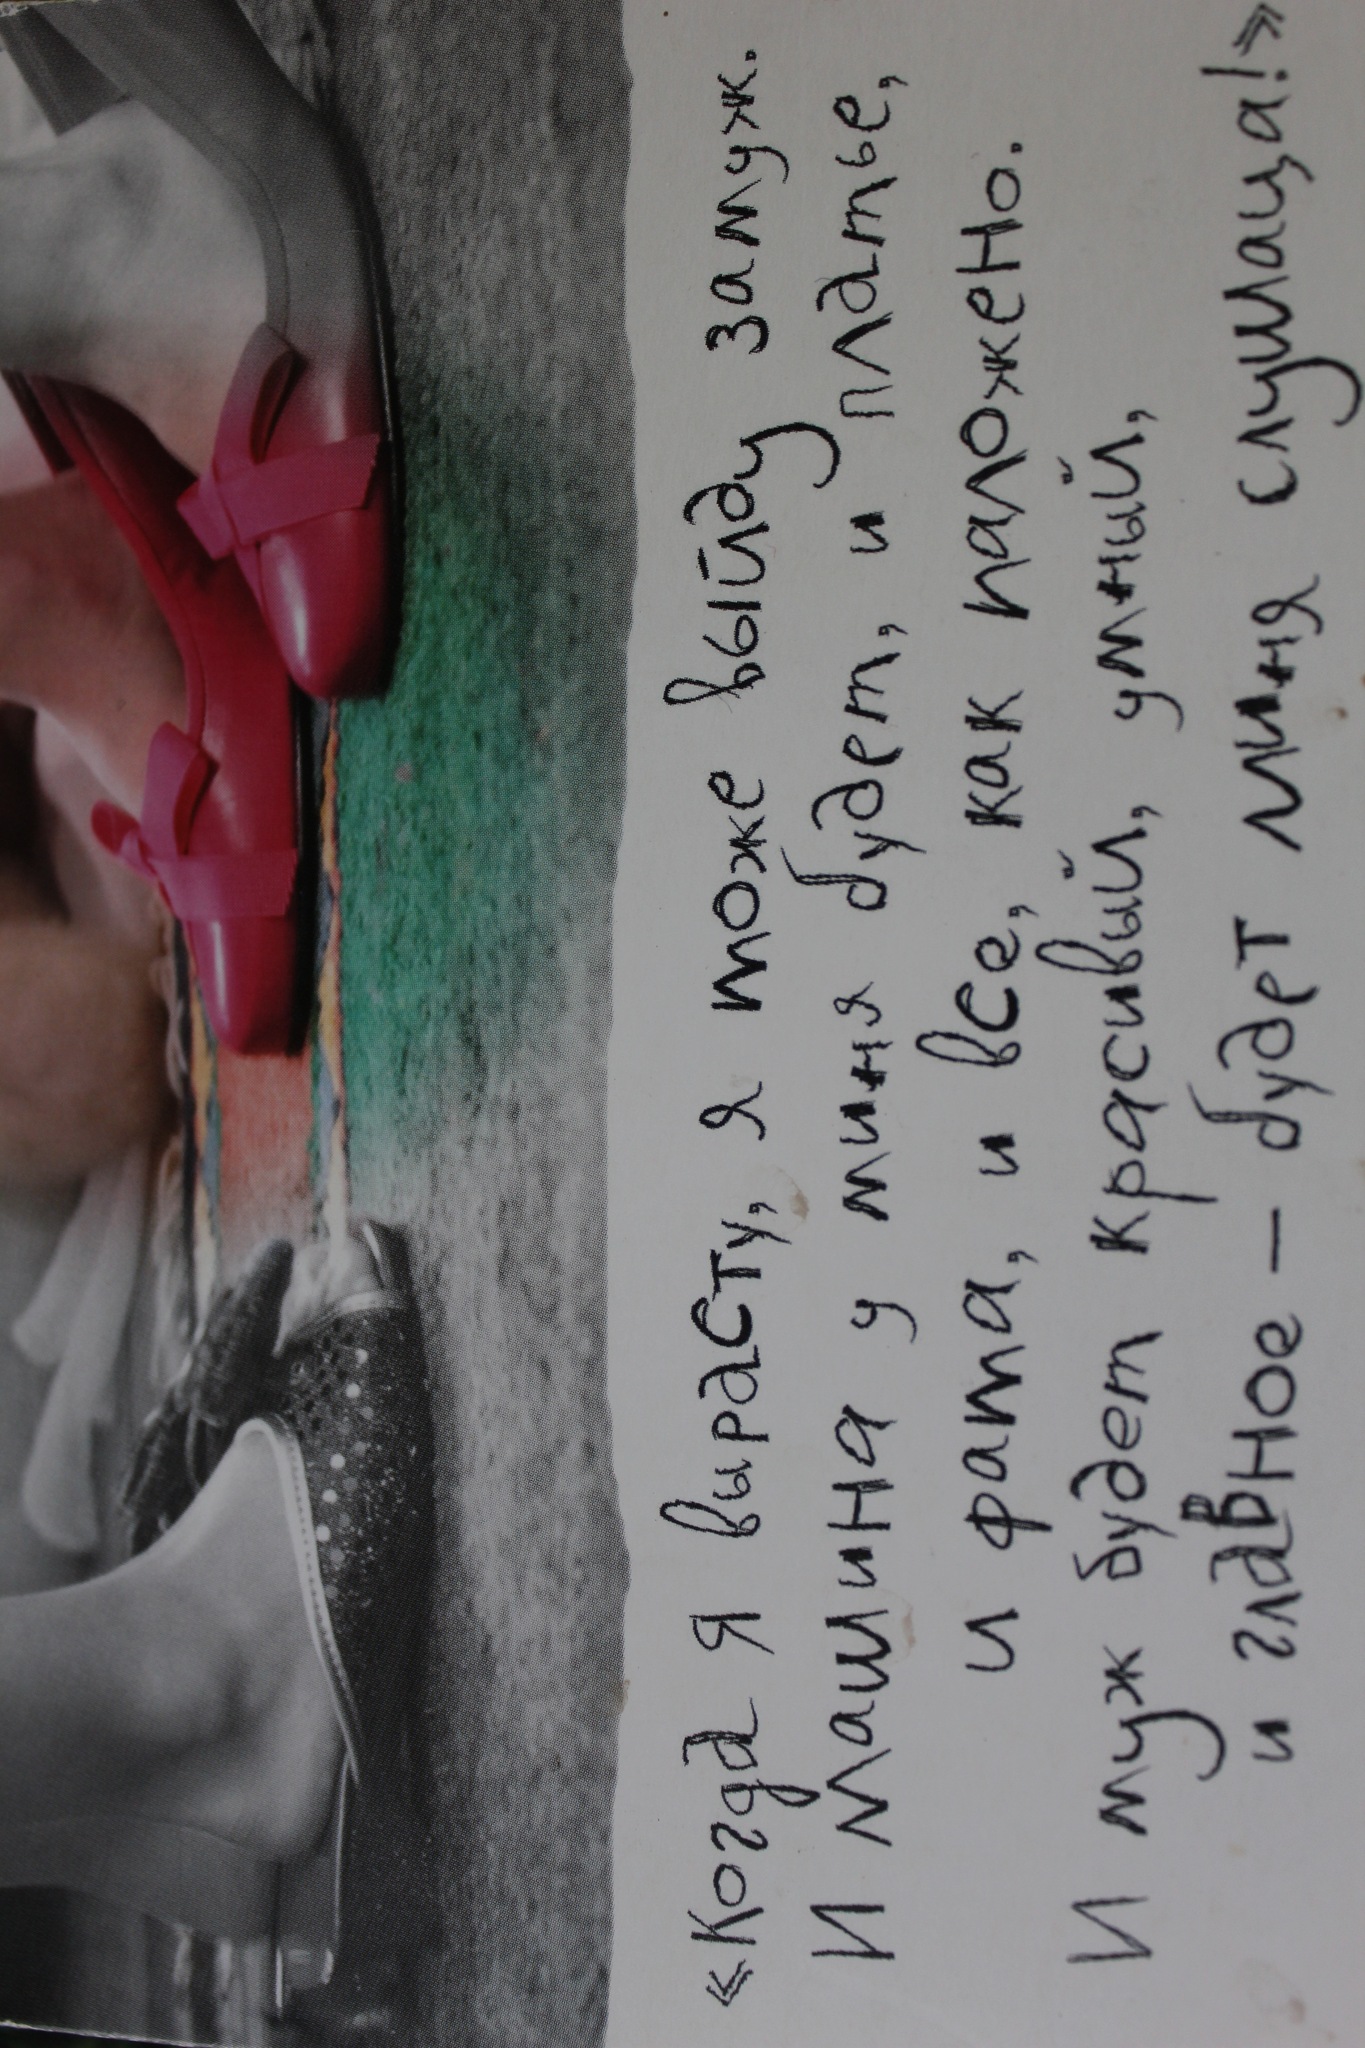 «Когда я вырасту, я може выйду замуж.
И машина у миня будет, и платье,
и фата, и все, как паложено.
И муж будет красивый, умный,
и главное – будет миня слушаца!»